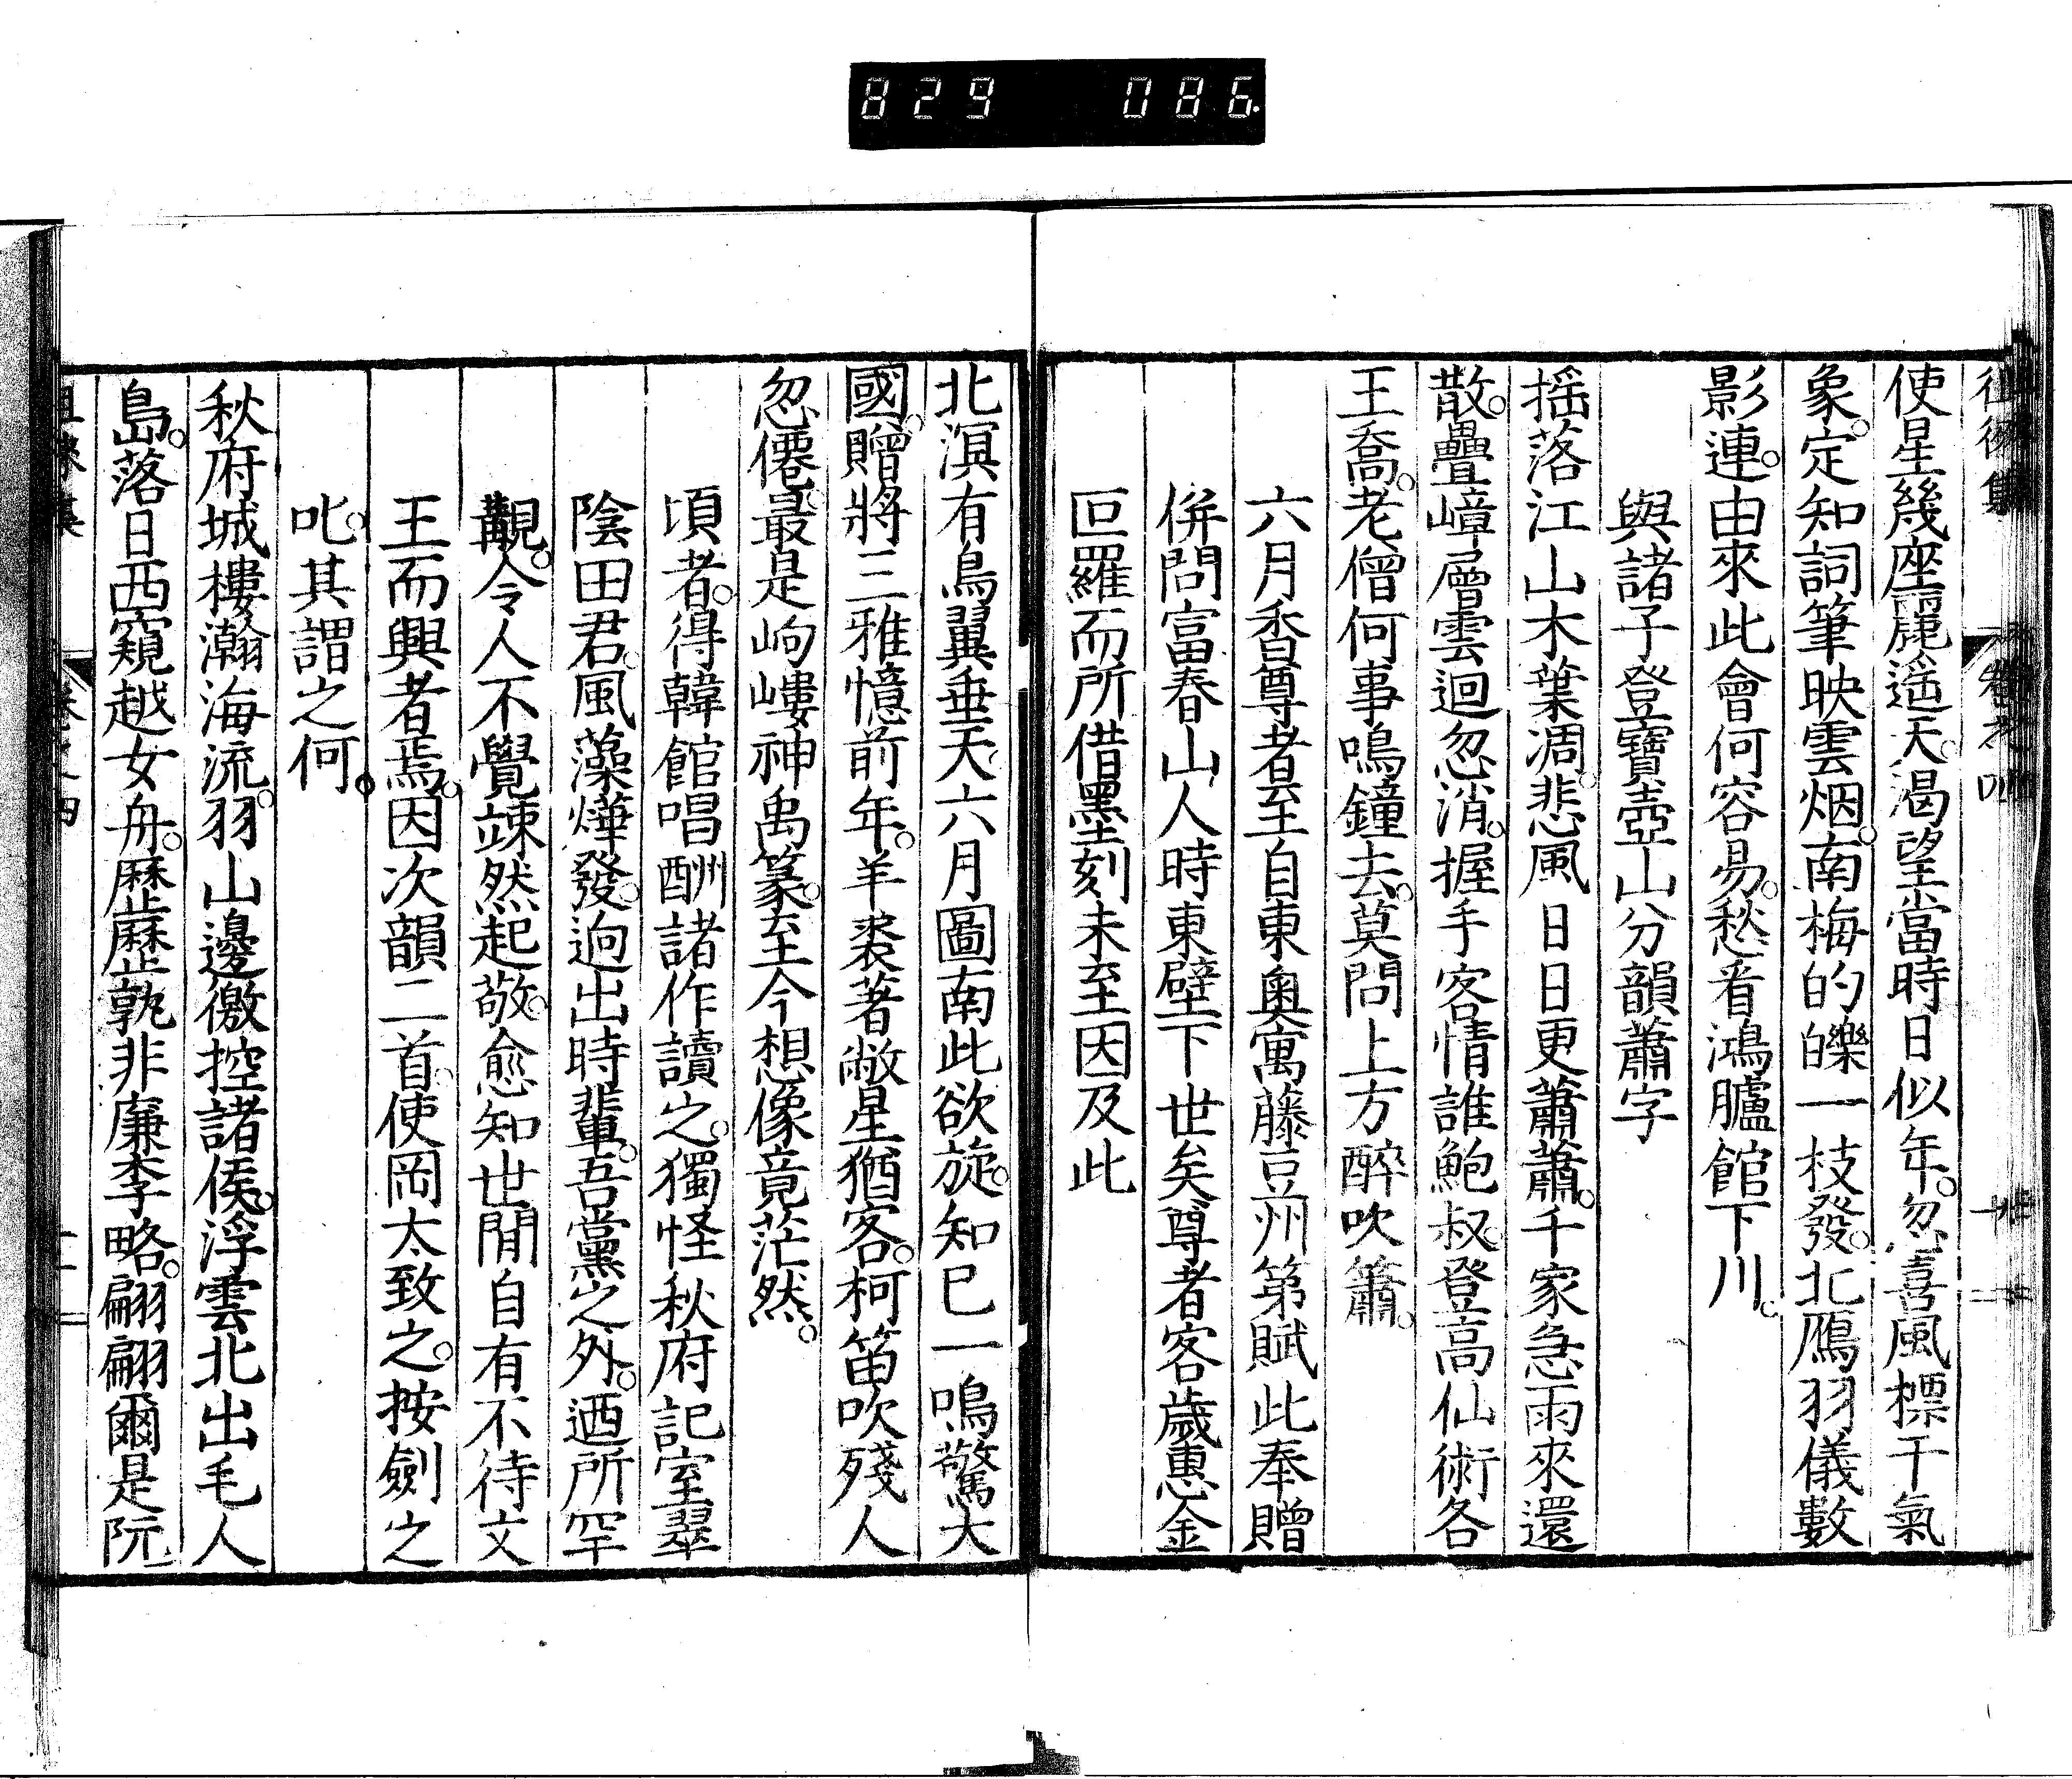 829 086
使星幾座麗遥天。渴望當時日似年。忽喜風標干氣
象。定知詞筆映雲烟。南梅的皪一枝發。北鴈羽儀數
影連。由來此會何容易。愁看鴻臚館下川。
與諸子登寶壺山分韻蕭字
揺落江山木葉凋。悲風日日更蕭蕭。千家急雨來還
散。疊嶂層雲迴忽消。握手客情誰鮑叔。登高仙術各
王喬。老僧何事鳴鐘去。莫問上方醉吹簫。
六月香尊者至自東奥寓藤豆州第賦此奉贈
併問富春山人時東壁下世矣尊者客歳惠金
叵羅而所借墨刻未至因及此
北溟有鳥翼垂天。六月圖南此欲旋。知已一鳴驚大
國。贈將三雅憶前年。羊裘著敝星猶客。柯笛吹殘人
忽僊。最是岣嶁神禹篆。至今想像竟茫然。
頃者。得韓館唱酬諸作讀之。獨怪秋府記室翠
陰田君。風藻燁發。逈出時輩。吾黨之外。迺所罕
觀。令人不覺竦然起敬。愈知世間自有不待文
王而興者焉。因次韻二首。使岡太致之。按劍之
叱。其謂之何。
秋府城樓瀚海流。羽山邊徼控諸侯。浮雲北出毛人
島。落日西窺越女舟。歴歴孰非廉李略。翩翩爾是阮